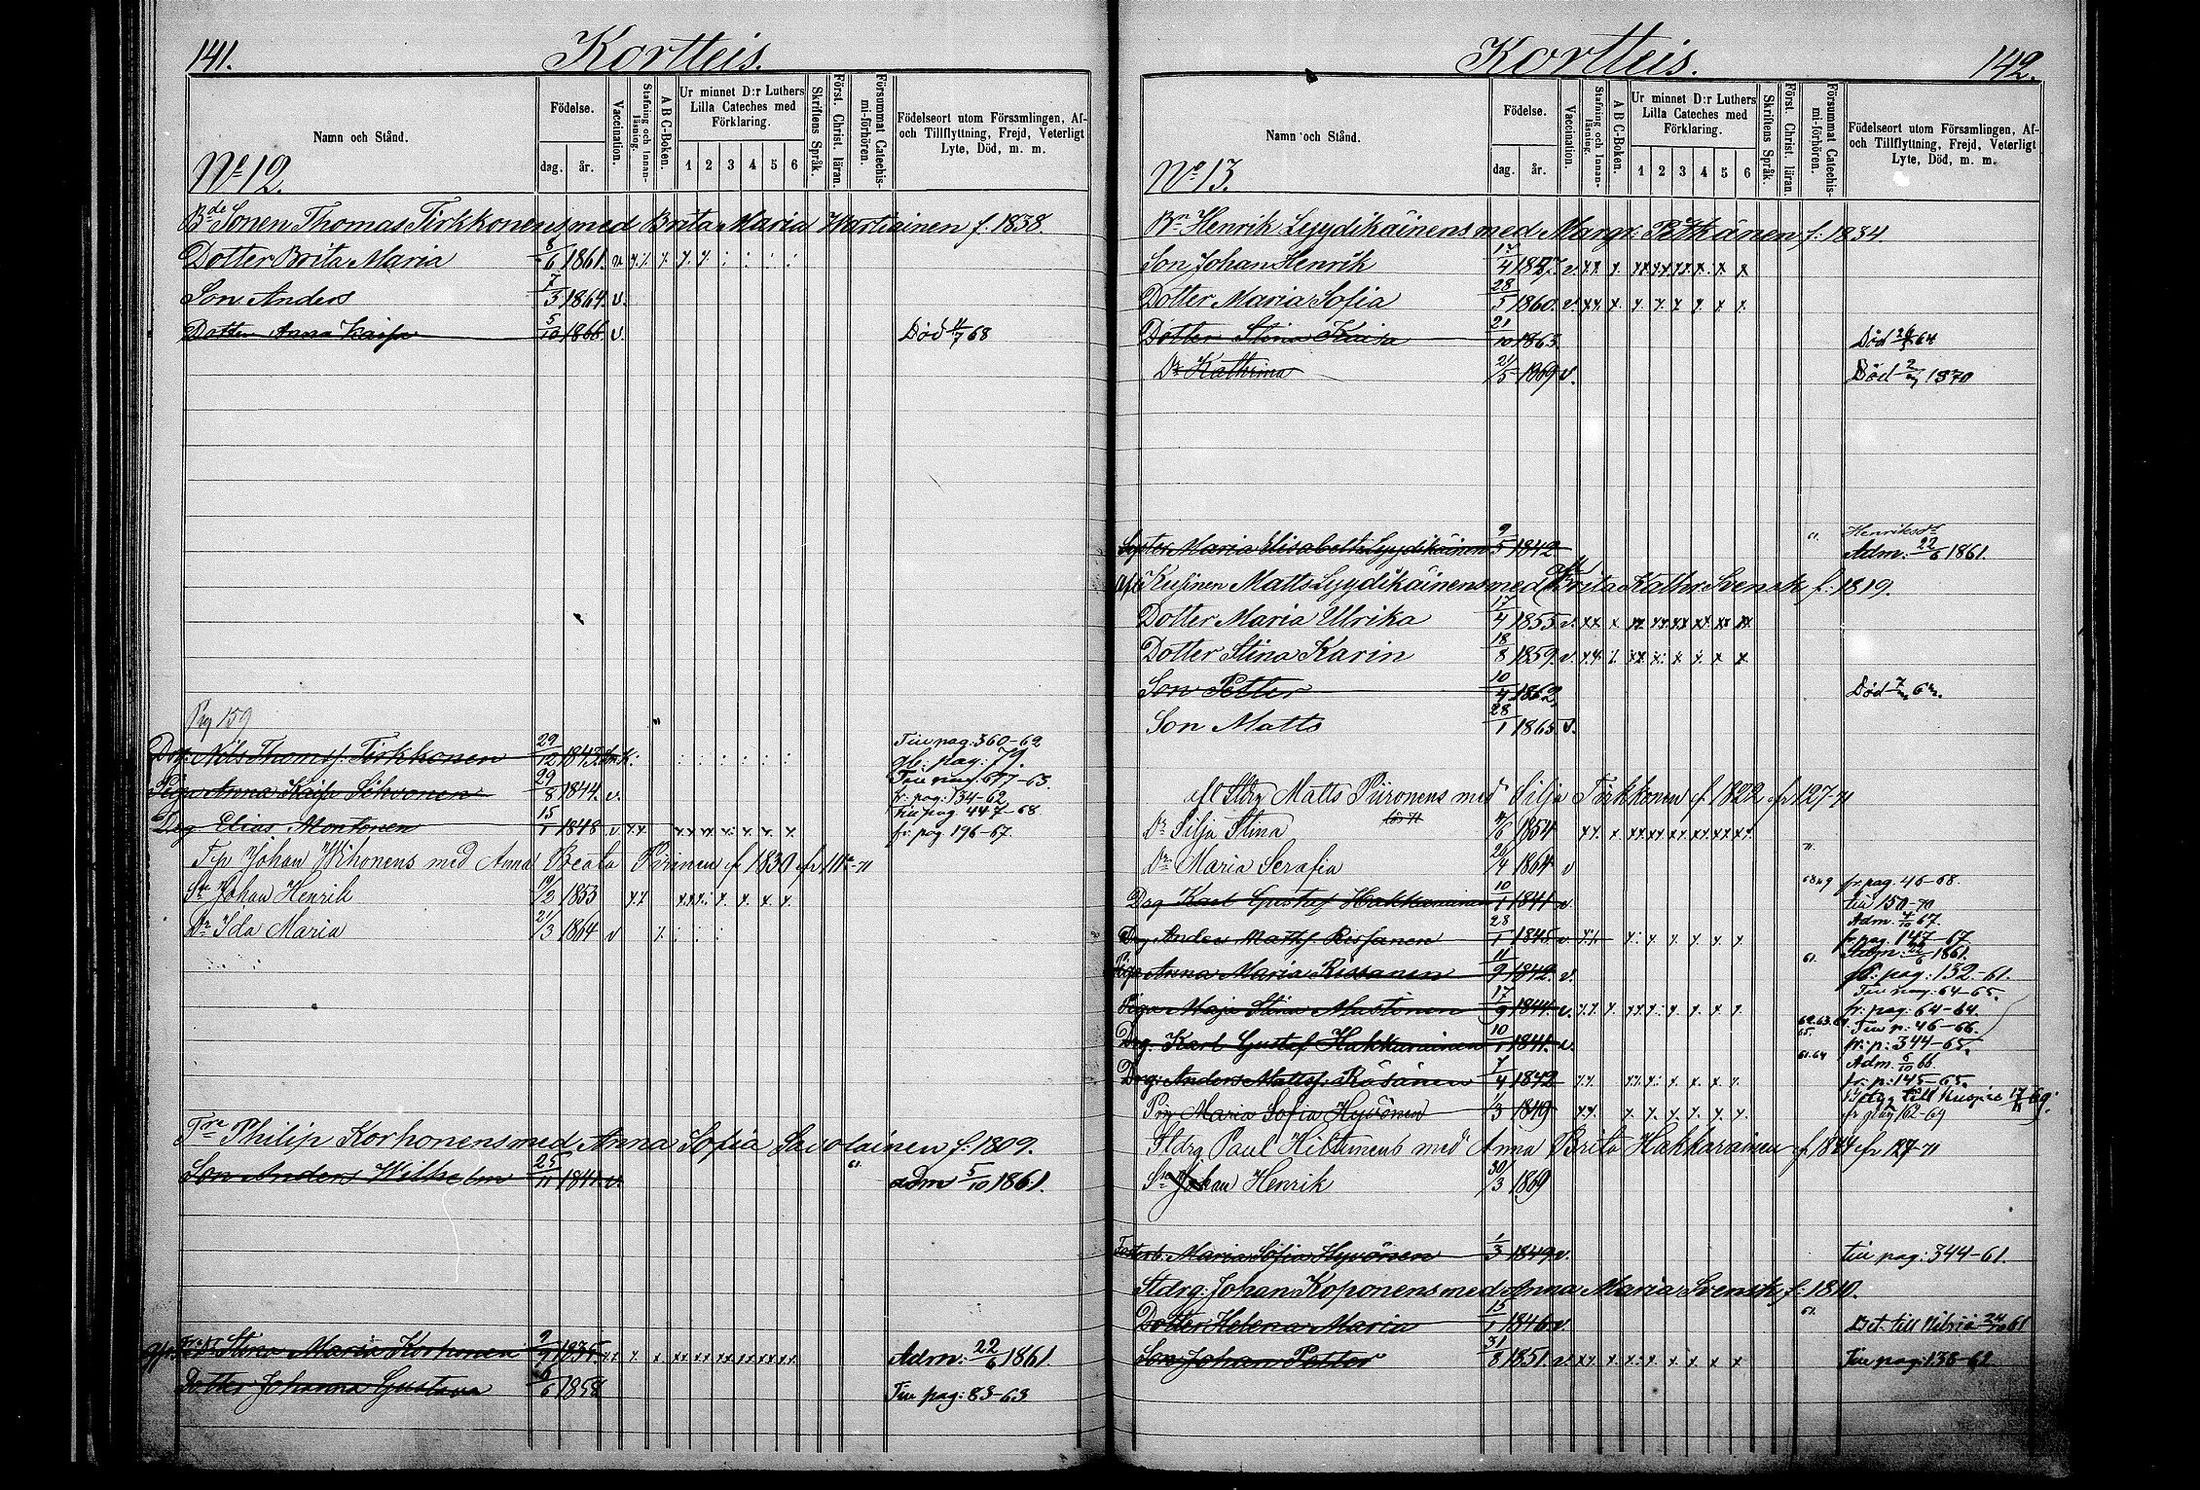 141.
Kortteis.
Namn och Stånd.
Födelse.
dag.
år.
Vaccination.
Stafning och Innan-läsning.
A B C-Boken.
Ur minnet D:r Luthers
Lilla Cateches med
Förklaring.
1 2 3 4 5 6
Skriftens Språk.
Först. Christ. läran.
Försummat Catechis-mi-förhören.
Födelseort utom Församlingen, Af-
och Tillflyttning, Frejd, Veterligt
Lyte, Död, m. m.
No 12.
Bde Sonen Thomas Tirkkonens med Brita Maria f. 1838.
Dotter Brita Maria 6 1861. v.
Son Anders 7/3 1864. v.
Dotter Anna Kaisa 5/10 1866. v. Död 68
Pag 159
Drg. Nils Thomsf. Tirkkonen 29/12 1843 Tiu pag: 360-62
Piga Anna Kaisa Sihvonen 29/8 1844. v. fr. pag: 134-62
Drg Elias Montonen 15/1 1848 v Tiu pag 447-68
fr. pag 196-67.
Tp Johan med Anna Beata Piirinen f 1830
Sn Johan Henrik 19/2 1853
Dr Ida Maria 21/3 1864 v
Philip Korhonens med Anna Sofia Savolainen f. 1809.
Son Anders Wilhelm 25/11 1841 v 61. Adm 5/10 1861.
Stina Maria Korhonen 9 1835 Adm: 22/6 1861.
Dotter Johanna Gustava 6 1858 Tiu pag: 83-63
Kortteis.
142.
Namn och Stånd.
Födelse.
dag.
år.
Vaccination.
Stafning och Innan-läsning.
A B C-Boken.
Ur minnet D:r Luthers
Lilla Cateches med
Förklaring.
1 2 3 4 5 6
Skriftens Språk.
Först. Christ. läran.
Försummat Catechis-mi-förhören.
Födelseort utom Församlingen, Af-
och Tillflyttning, Frejd, Veterligt
Lyte, Död, m. m.
No 13.
Bn Henrik Lyydikäinens med Margr. Pitkänen f: 1834.
Son Johan Henrik 17/4 1857. v.
Dotter Maria Sofia 28/5 1860. v.
Dotter Stina Kaisa 21/10 1863. Död 64
Dr Kathrina 21/5 1869 v. Död 1870
Syster Maria Elisabeth Lyydikäinen 9/5 1842 61. Henriksdr
Adm: 22/6 1861.
Kusinen Matts Lyydikäinens med Brita Kathr Svensk f: 1819.
Dotter Maria Ulrika 17/4 1855 v.
Dotter Stina Karin 18/8 1859. v.
Son Petter 10/4 1862 Död
Son Matts 28/1 1865. v.
afl Stdrg Matts Piironens med Silja Tirkkonen f 1822 fr 127-71
Dr Silja Stina 1854
Dr Maria Serafia 26/4 1864 v
Drg Karl Gustaf Hakkarainen 10/1 1841 v. fr pag. 46-68.
tiu 150-70
Drg Anders Mattsf Rissanen 28/1 1845 v. Adm. 67.
fr. pag. 147-67
Piga Anna Maria Rissanen 11/9 1842. v. 61. Adm: 22/6 1861.
gl: pag: 152-61.
Piga Maja Stina Mustonen 17/9 1844 v. Tiu pag: 64-65.
fr: pag: 64-64.
Drg. Karl Gustaf Hakkarainen 10/1 1841. v. Tiu p: 46-66.
fr: p: 344-65.
Drg: Anders Mattsf: Räsänen 7/4 1842 61.64 Adm 66
fr. p: 145-65.
Pig Maria Sofia Hyvönen 1/3 1849 till Kuopio 69.
fr pag 162-69
Stdrg Paul Hiltunens med Anna Brita Hakkarainen f 1844 fr 127-71
Sn Johan Henrik 30/3 1869
Maria Sofia Hyvönen 1/3 1849 v. tiu pag: 344-61.
Stdrg: Johan Koponens med Anna Maria Svensk f: 1810.
Dotter Helena Maria 15/1 1846 v. 61. Bet. till 61
Son Johan Petter 31/8 1851. v. Tiu pag: 138-62